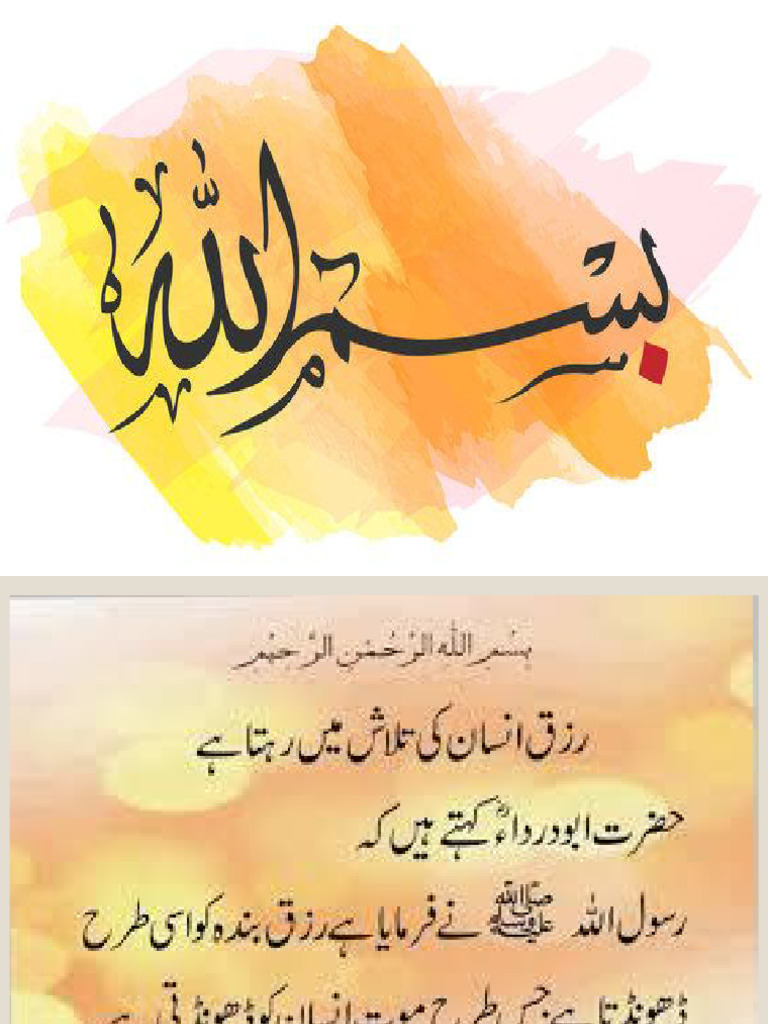 بسم الله
بِسْمِ اللهِ الرَّحْمٰنِ الرَّحِيْمِ
رزق انسان کی تلاش میں رہتا ہے
حضرت ابودرداءؓ کہتے ہیں کہ
رسول اللہ ﷺ نے فرمایا ہے رزق بندہ کو اسی طرح
ڈھونڈتا ہے جس طرح موت انسان کو ڈھونڈتی ہے